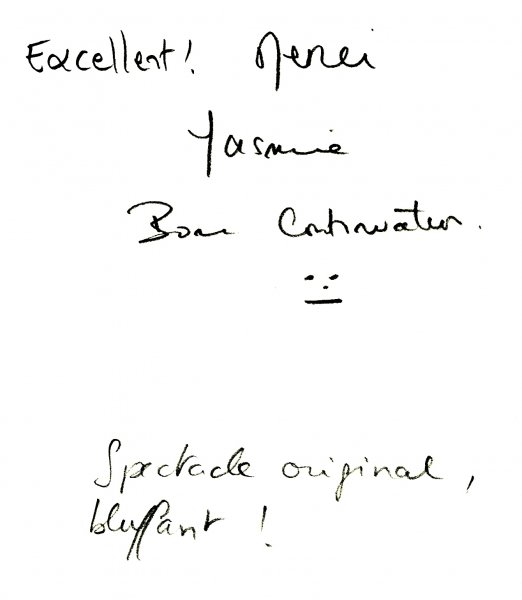 Excellent! Merci
Yasmine
Bonne Continuation.
Spectacle original,
bluffant !